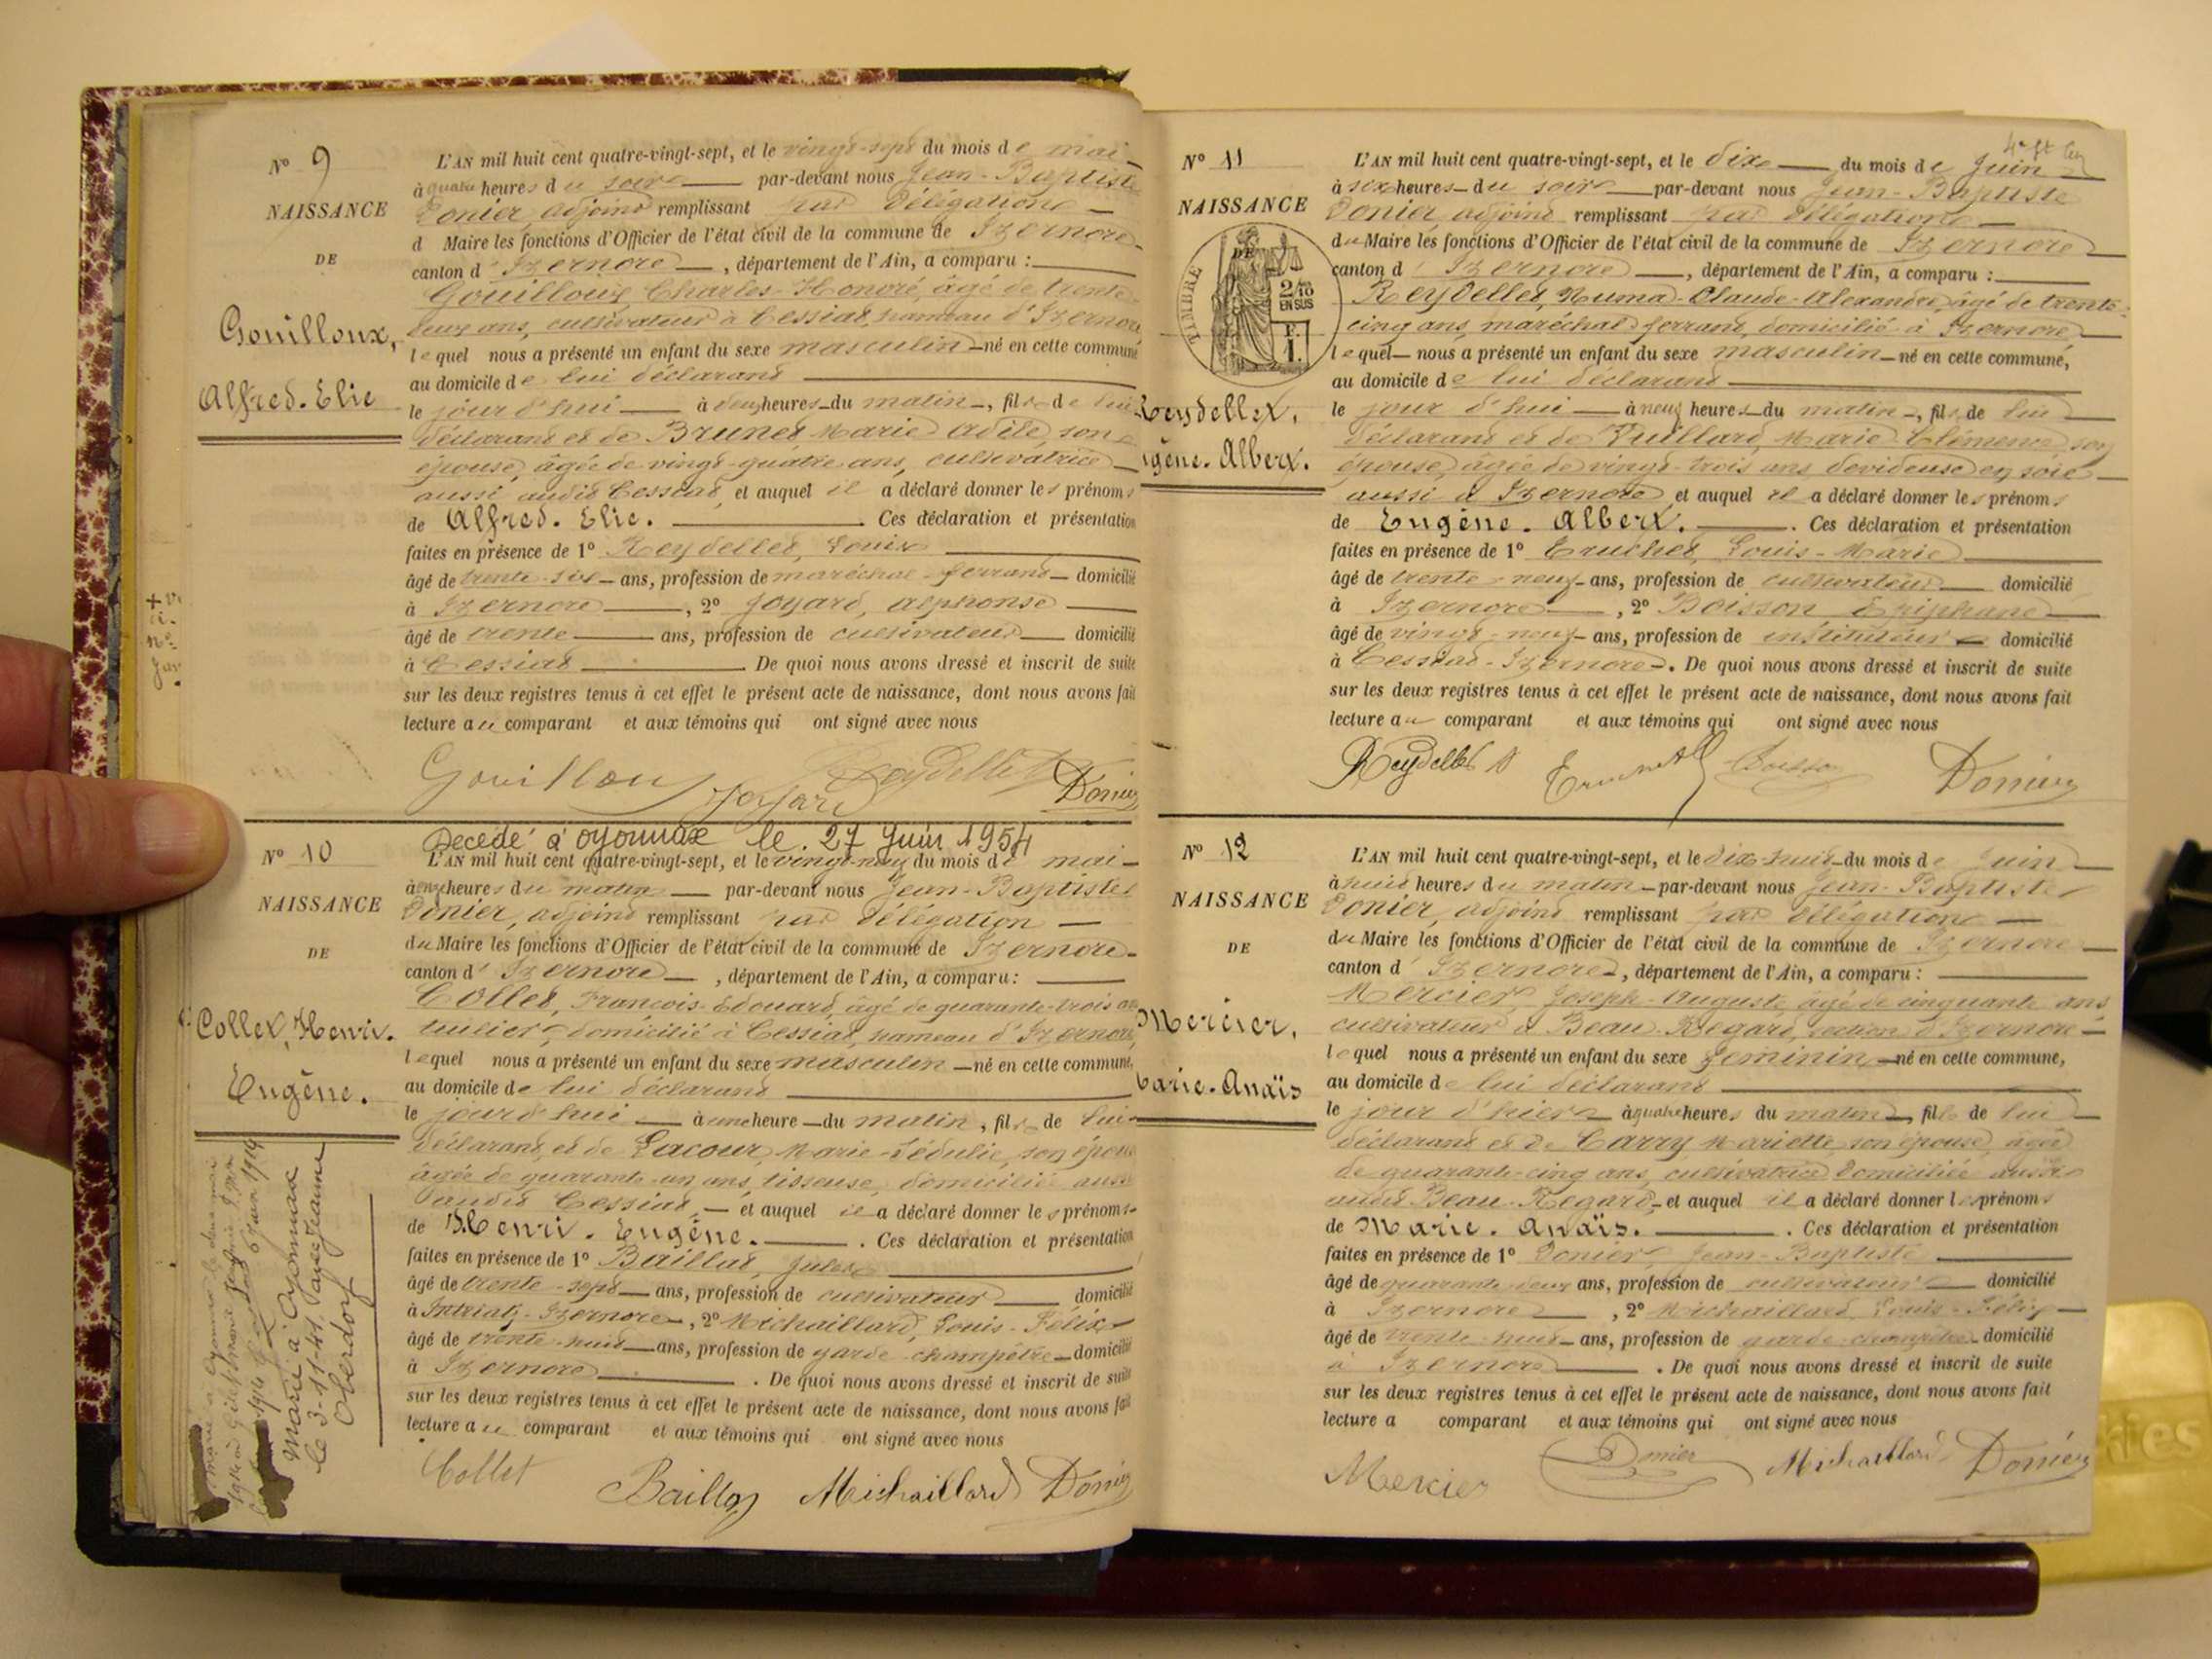 N° 9
NAISSANCE
DE
Gouilloux,
Alfred. Elie
L'AN mil huit cent quatre-vingt-sept, et le vingt-sept du mois de mai
à quatre heures du soir par-devant nous Jean-Baptiste
Donier, adjoint remplissant par délégation
d Maire les fonctions d'Officier de l'état civil de la commune de Izernore
canton d'Izernore, département de l'Ain, a comparu :
Gouilloux Charles-Honoré, âgé de trente
deux ans, cultivateur à Cessiat, hameau d'Izernore
lequel nous a présenté un enfant du sexe masculin né en cette commune
au domicile de lui déclarant
le jour d'hui à deux heures du matin, fils de lui
déclarant et de Brunet Marie Adile, son
épouse, âgée de vingt-quatre ans, cultivatrice
aussi audit Cessiat, et auquel il a déclaré donner les prénoms
de Alfred. Elie. Ces déclaration et présentation
faites en présence de 1° Reydellet, Louis
âgé de trente-six ans, profession de maréchal-ferrant domicilié
à Izernore, 2° Joyard, Alphonse
âgé de trente ans, profession de cultivateur domicilié
à Cessiat. De quoi nous avons dressé et inscrit de suite
sur les deux registres tenus à cet effet le présent acte de naissance, dont nous avons fait
lecture au comparant et aux témoins qui ont signé avec nous
Gouilloux Joyard Reydellet Donier
Decédé à Oyonnax le 27 Juin 1954
N° 10
NAISSANCE
DE
Collet, Henri.
Eugène.
Marié à Oyonnax
le 3-11-41 avec Jeanne
Oberdorf
L'AN mil huit cent quatre-vingt-sept, et le vingt-neuf du mois de mai
à onze heures du matin par-devant nous Jean-Baptiste
Donier, adjoint remplissant par délégation
du Maire les fonctions d'Officier de l'état civil de la commune de Izernore
canton d'Izernore, département de l'Ain, a comparu :
Collet, François-Edouard, âgé de quarante-trois ans
tuilier, domicilié à Cessiat, hameau d'Izernore,
lequel nous a présenté un enfant du sexe masculin né en cette commune,
au domicile de lui déclarant
le jour d'hui à une heure du matin, fils de lui
déclarant et de Lacour, Marie-Sédulie, son épouse
âgée de quarante-un ans, tisseuse, domiciliée aussi
audit Cessiat, et auquel il a déclaré donner les prénoms
de Henri. Eugène. Ces déclaration et présentation
faites en présence de 1° Baillat, Jules
âgé de trente-sept ans, profession de cultivateur domicilié
à Intriat-Izernore, 2° Michaillard, Louis-Félix
âgé de trente-huit ans, profession de garde-champêtre domicilié
à Izernore. De quoi nous avons dressé et inscrit de suite
sur les deux registres tenus à cet effet le présent acte de naissance, dont nous avons fait
lecture au comparant et aux témoins qui ont signé avec nous
Collet Baillat Michaillard Donier
N° 11
NAISSANCE
DE
TIMBRE
2/10
EN SUS
F.
1.
Reydellet,
Eugène. Albert.
L'AN mil huit cent quatre-vingt-sept, et le dix du mois de Juin
à six heures du soir par-devant nous Jean-Baptiste
Donier, adjoint remplissant par délégation
du Maire les fonctions d'Officier de l'état civil de la commune de Izernore
canton d'Izernore, département de l'Ain, a comparu :
Reydellet, Numa-Claude-Alexandre, âgé de trente-
cinq ans, maréchal ferrant, domicilié à Izernore
lequel nous a présenté un enfant du sexe masculin né en cette commune,
au domicile de lui déclarant
le jour d'hui à neuf heures du matin, fils de lui
déclarant et de Vuillard, Marie Clémence, son
épouse, âgée de vingt-trois ans, devideuse en soie
aussi à Izernore, et auquel il a déclaré donner les prénoms
de Eugène. Albert. Ces déclaration et présentation
faites en présence de 1° Truchet, Louis-Marie
âgé de trente-neuf ans, profession de cultivateur domicilié
à Izernore, 2° Boisson Epiphane
âgé de vingt-neuf ans, profession de instituteur domicilié
à Cessiat-Izernore. De quoi nous avons dressé et inscrit de suite
sur les deux registres tenus à cet effet le présent acte de naissance, dont nous avons fait
lecture au comparant et aux témoins qui ont signé avec nous
Reydellet Truchet Boisson Donier
N° 12
NAISSANCE
DE
Mercier,
Marie-Anaïs
L'AN mil huit cent quatre-vingt-sept, et le dix-huit du mois de Juin
à huit heures du matin par-devant nous Jean-Baptiste
Donier, adjoint remplissant par délégation
du Maire les fonctions d'Officier de l'état civil de la commune de Izernore
canton d'Izernore, département de l'Ain, a comparu :
Mercier, Joseph-Auguste, âgé de cinquante ans,
cultivateur à Beau-Regard, section d'Izernore
lequel nous a présenté un enfant du sexe féminin né en cette commune,
au domicile de lui déclarant
le jour d'hier à quatre heures du matin, fille de lui
déclarant et de Carry Mariette, son épouse, âgée
de quarante-cinq ans, cultivatrice domiciliée aussi
audit Beau-Regard, et auquel il a déclaré donner les prénoms
de Marie. Anaïs. Ces déclaration et présentation
faites en présence de 1° Donier, Jean-Baptiste
âgé de quarante deux ans, profession de cultivateur domicilié
à Izernore, 2° Michaillard, Louis-Félix
âgé de trente-huit ans, profession de garde-champêtre domicilié
à Izernore. De quoi nous avons dressé et inscrit de suite
sur les deux registres tenus à cet effet le présent acte de naissance, dont nous avons fait
lecture a comparant et aux témoins qui ont signé avec nous
Mercier Donier Michaillard Donier